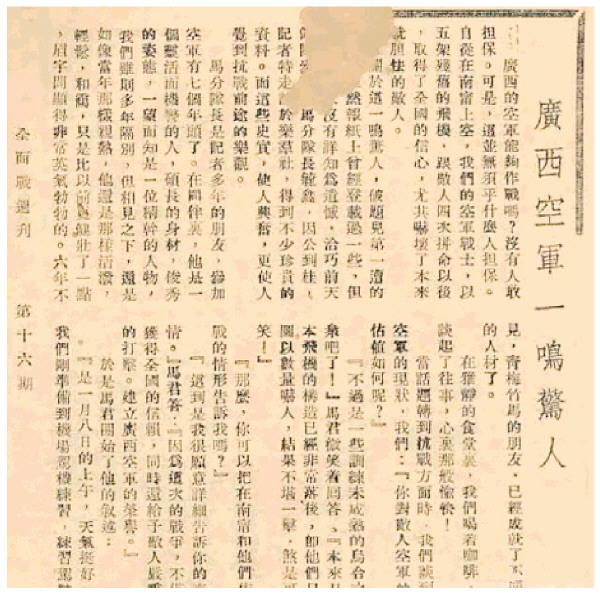 廣西空軍一鳴驚人
廣西的空軍能夠作戰嗎？沒有人敢
担保。可是，這並無須乎什麼人担保。
自從在南甯上空，我們的空軍戰士，以
五架殘舊的飛機，跟敵人四次拼命以後
，取得了全國的信心，尤其嚇壞了本來
就胆怯的敵人。
關於這一鳴驚人，破題兒第一遭的
然報紙上曾經登載過一些，但
沒有詳知為遺憾，洽巧前天
馬分隊長毓鑫，因公到桂，
記者特走訪於樂羣社，得到不少珍貴的
資料。而這些史實，使人興奮，更使人
覺到抗戰前途的樂觀。
馬分隊長是記者多年的朋友，參加
空軍有七個年頭了。在同伴裏，他是一
個靈活而機警的人，碩長的身材，俊秀
的姿態，一望而知是一位精幹的人物，
我們雖則多年隔別，但相見之下，還是
如像當年那樣親熱，他還是那樣活潑，
輕鬆，和藹，只是比以前健壯了一點
，眉宇間顯得非常英氣勃勃的。六年不
見，青梅竹馬的朋友，已經成就了
的人材了。
在雅靜的食堂裏，我們喝着咖啡，
談起了往事，心裏那般愉快！
當話題轉到抗戰方面時，我們談到
空軍的現狀，我們：『你對敵人空軍的
估值如何呢？』
『不過是一些訓練未成熟的烏合之
衆吧了！』馬君微笑着回答、『本來
本飛機的構造已經非常落後，卽他們
圖以數量嚇人，結果不堪一擊，煞是可
笑！』
『那麼，你可以把在南甯和他們作
戰的情形告訴我嗎？』
『這到是我很願意詳細告訴你的
情。』馬君答：『因爲這次的戰爭，不
獲得全國的信賴，同時還給予敵人嚴重
的打擊。建立廣西空軍的榮譽。』
於是馬君開始了他的叙述：
『是一月八日的上午，天氣挺好
我們剛準備到機塲駕機練習，練習駕
全面戰週刊 第十六期